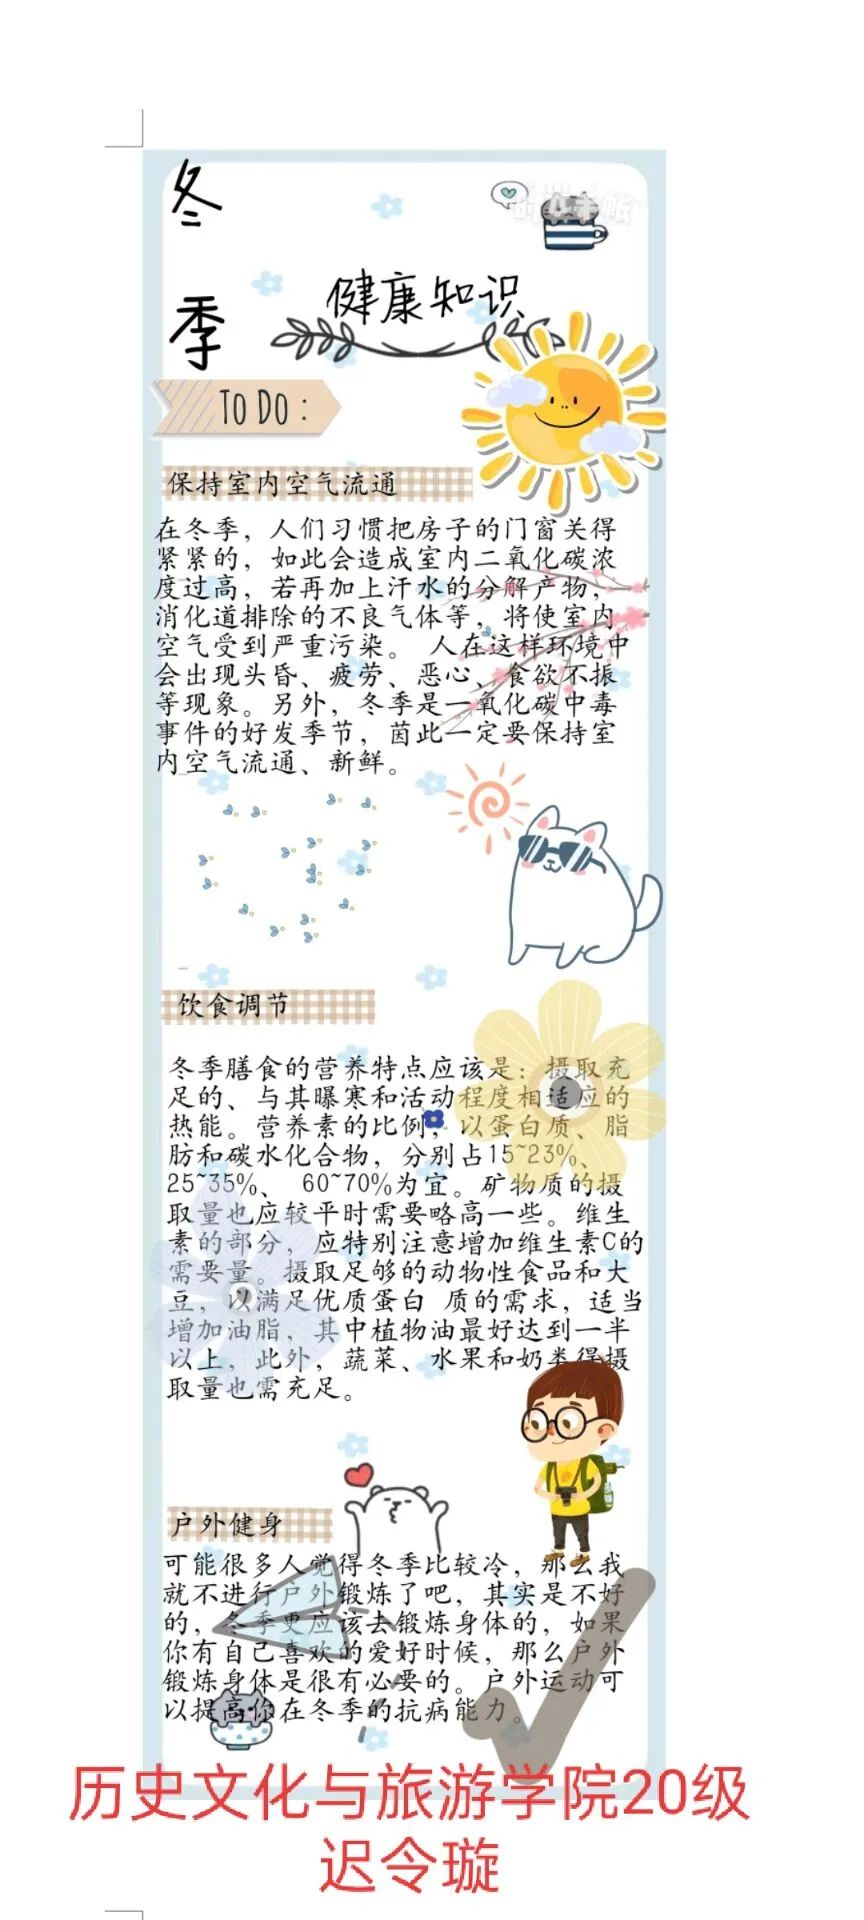 冬
季
健康知识
TO DO：
保持室内空气流通
在冬季，人们习惯把房子的门窗关得
紧紧的，如此会造成室内二氧化碳浓
度过高，若再加上汗水的分解产物，
消化道排除的不良气体等，将使室内
空气受到严重污染。 人在这样环境中
会出现头昏、疲劳、恶心、食欲不振
等现象。另外，冬季是一氧化碳中毒
事件的好发季节，茵此一定要保持室
内空气流通、新鲜。
饮食调节
冬季膳食的营养特点应该是：摄取充
足的、与其曝寒和活动程度相适应的
热能。营养素的比例，以蛋白质、脂
肪和碳水化合物，分别占15~23%、
25~35%、 60~70%为宜。矿物质的摄
取量也应较平时需要略高一些。维生
素的部分，应特别注意增加维生素C的
需要量。摄取足够的动物性食品和大
豆，以满足优质蛋白 质的需求，适当
增加油脂，其中植物油最好达到一半
以上，此外，蔬菜、水果和奶类得摄
取量也需充足。
户外健身
可能很多人觉得冬季比较冷，那么我
就不进行户外锻炼了吧，其实是不好
的，冬季更应该去锻炼身体的，如果
你有自己喜欢的爱好时候，那么户外
锻炼身体是很有必要的。户外运动可
以提高你在冬季的抗病能力。
历史文化与旅游学院20级
迟令璇